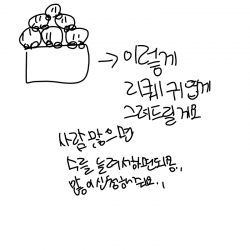 → 이렇게
리퀘 귀엽게
그려드릴게요
사람 많으면
수를 늘려서하면되용,,
많이신청해줘요,,